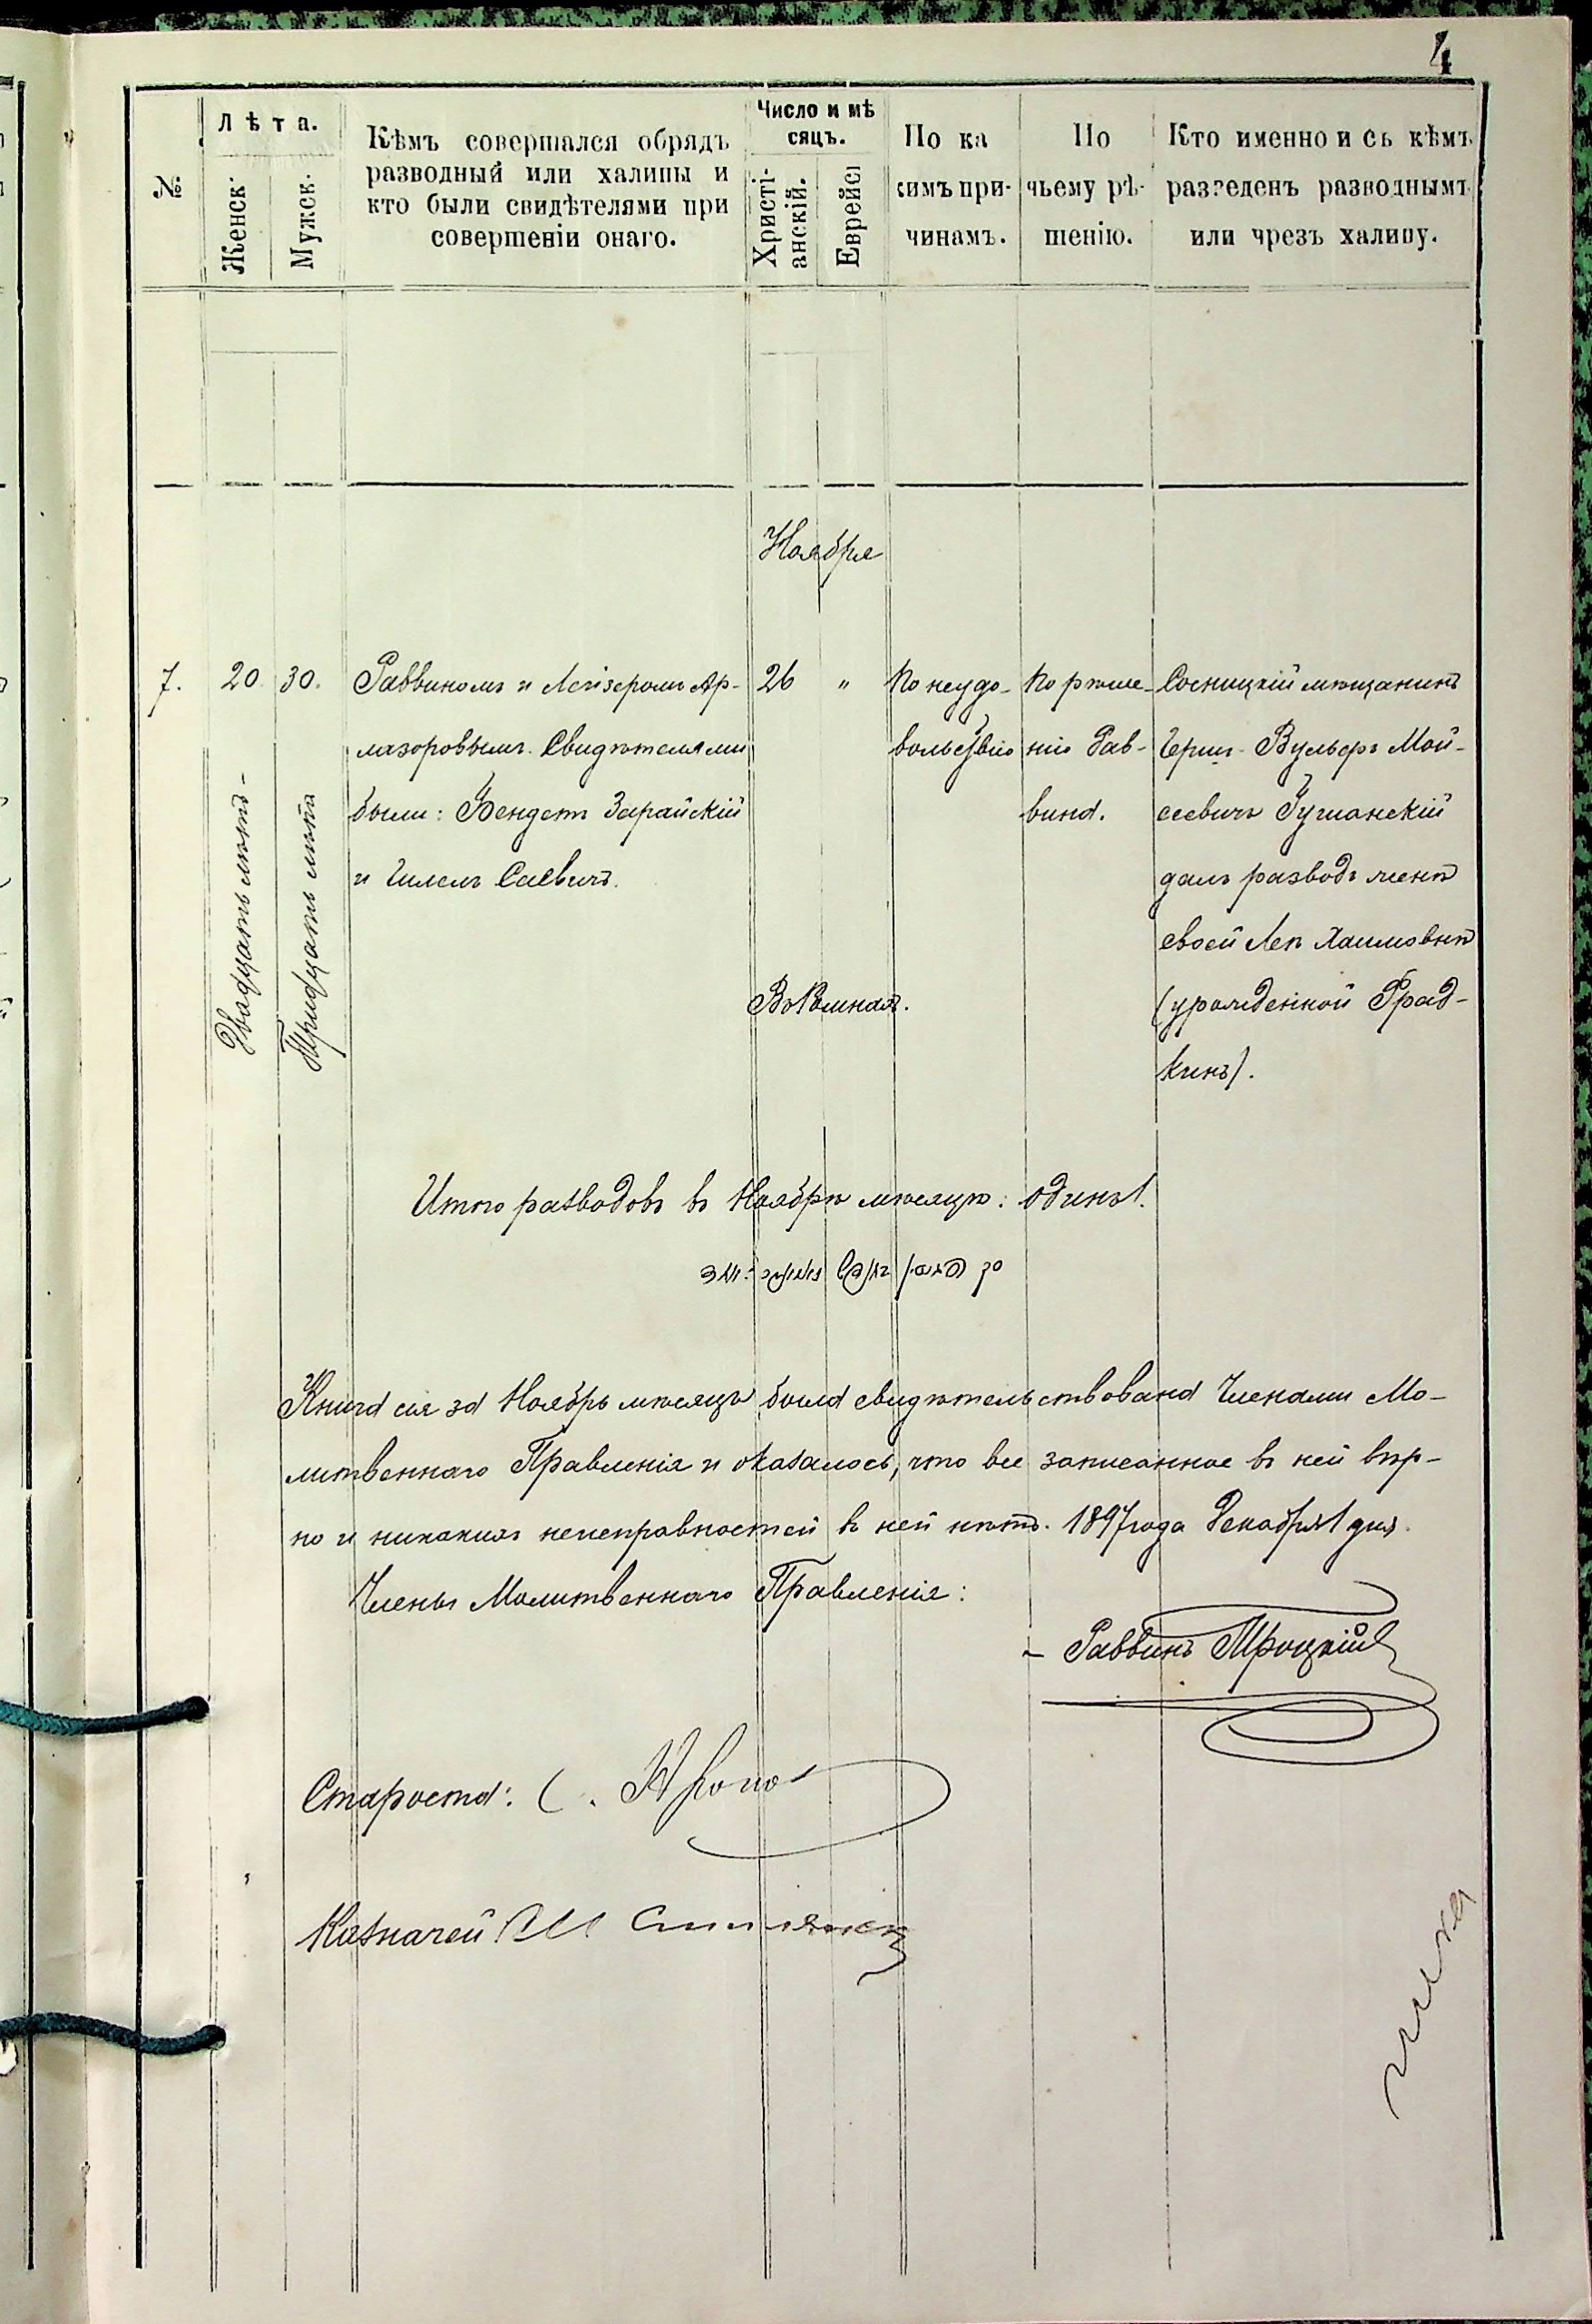 4
№
Лѣта.
Женск.
Мужск.
Кѣмъ совершался обрядъ
разводный или халицы и
кто были свидѣтелями при
совершеніи онаго.
Число и мѣ
сяцъ.
Христі-
анскій.
Еврейс
По ка
кимъ при-
чинамъ.
По
чьему рѣ-
шенію.
Кто именно и съ кѣмъ
разведенъ разводнымъ
или чрезъ халицу.
Ноября
7.
20.
Двадцать лѣтъ-
30.
Тридцать лѣтъ
Раввиномъ и Лейзеромъ Ар-
лазоровымъ. Свидѣтелями
были: Бендетъ Зарайскій
и Гилелъ Саевичъ.
26 "
Въ Ромнахъ.
По неудо-
вольствію
По рѣше-
нію Рав-
вина.
Сосницкій мѣщанинъ
Герш-Вульфъ Мой-
сеевичъ Гуманскій
далъ разводъ женѣ
своей Леѣ Хаимовнѣ
(урожденной Фрад-
кинъ).
Итого разводовъ въ Ноябрѣ мѣсяцѣ: одинъ 1.
Книга сія за Ноябрь мѣсяцъ была свидѣтельствована Членами Мо-
литвеннаго Правленія и оказалось, что все записанное въ ней вѣр-
но и никакихъ неисправностей въ ней нѣтъ. 1897 года Декабря 1 дня.
Члены Молитвеннаго Правленія:
Раввинъ Троцкій
Староста:
Казначей